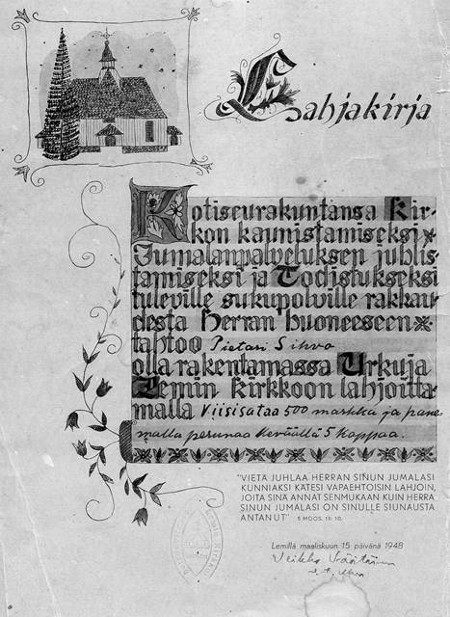 Lahjakirja
Kotiseurakuntansa Kir-
kon kaunistamiseksi
Jumalanpalveluksen juhlis-
tamiseksi ja Todistukseksi
tuleville sukupolville rakkau-
desta Herran huoneeseen
tahtoo Pietari Sihvo
olla rakentamassa Urkuja
Lemin kirkkoon lahjoitta-
malla Viisisataa 500 markka ja pane
malla perunaa keväällä 5 kappaa.
"VIETÄ JUHLAA HERRAN SINUN JUMALASI
KUNNIAKSI KÄTESI VAPAEHTOISIN LAHJOIN,
JOITA SINÄ ANNAT SENMUKAAN KUIN HERRA
SINUN JUMALASI ON SINULLE SIUNAUSTA
ANTANUT" 5 MOOS. 16. 10.
Lemillä maaliskuun 15 päivänä 1948